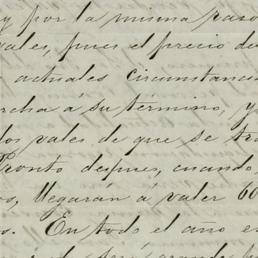 y por la misma razo
vales, pues el precio de
actuales circunstanc
rcha á su término, y
los vales de que se tra
Pronto despues, cuando
os, llegarán á valer 60
o. En todo el año en